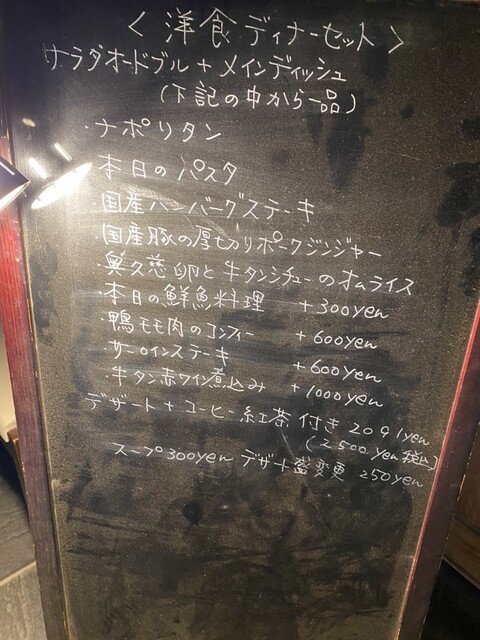 〈洋食ディナーセット〉
サラダオードブル+メインディッシュ
(下記の中から一品)
・ナポリタン
・本日のパスタ
・国産ハンバーグステーキ
・国産豚の厚切りポークジンジャー
・奥久慈卵と牛タンシチューのオムライス
・本日の鮮魚料理 +300yen
・鴨モモ肉のコンフィー +600yen
・サーロインステーキ +600yen
・牛タン赤ワイン煮込み +1000yen
デザート+コーヒー紅茶付き 2091yen
(2,500yen税込)
スープ300yen デザート盛変更 250yen